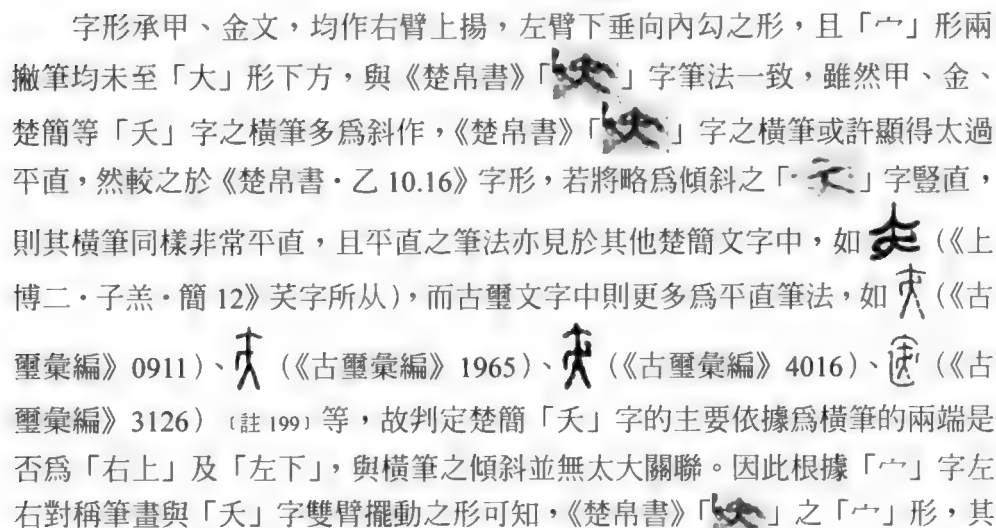 字形承甲、金文，均作右臂上揚，左臂下垂向內勾之形，且「宀」形兩
撇筆均未至「大」形下方，與《楚帛書》「」字筆法一致，雖然甲、金、
楚簡等「夭」字之橫筆多爲斜作，《楚帛書》「」字之橫筆或許顯得太過
平直，然較之於《楚帛書·乙 10.16》字形，若將略爲傾斜之「」字豎直，
則其橫筆同樣非常平直，且平直之筆法亦見於其他楚簡文字中，如（《上
博二·子羔·簡 12》芺字所从），而古璽文字中則更多爲平直筆法，如（《古
璽彙編》0911）、（《古璽彙編》1965）、（《古璽彙編》4016）、（《古
璽彙編》3126）〔註 199〕等，故判定楚簡「夭」字的主要依據爲橫筆的兩端是
否爲「右上」及「左下」，與橫筆之傾斜並無太大關聯。因此根據「宀」字左
右對稱筆畫與「夭」字雙臂擺動之形可知，《楚帛書》「」之「宀」形，其